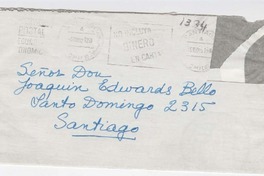 1334
DINERO
EN CARTAS
Señor Don
Joaquin Edwards Bello
Santo Domingo 2315
Santiago